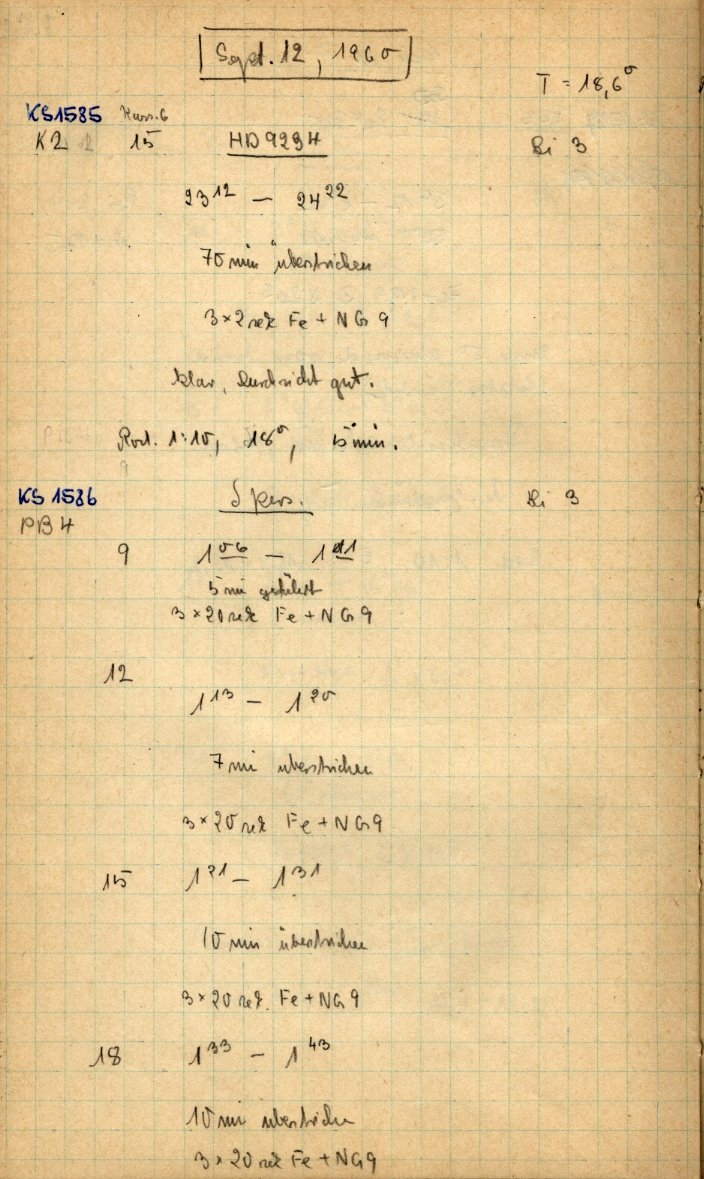 Sept. 12, 1960
T = 18,6°
KS1585 Kass. 6
K2 15 HD 9234 Bi 3
23¹² — 24²²
70 min überstrichen
3×2 sek Fe + NG 9
klar, Durchsicht gut.
Rod. 1:10, 18°, 5 min.
KS 1586 γ Pers. Bi 3
PB 4
9 1⁰⁶ — 1¹¹
5 min geführt
3×20 sek Fe + NG 9
12
1¹³ — 1²⁰
7 min überstrichen
3×20 sek Fe + NG 9
15 1²¹ — 1³¹
10 min überstrichen
3×20 sek. Fe + NG 9
18 1³³ — 1⁴³
10 min überstrichen
3×20 sek Fe + NG 9